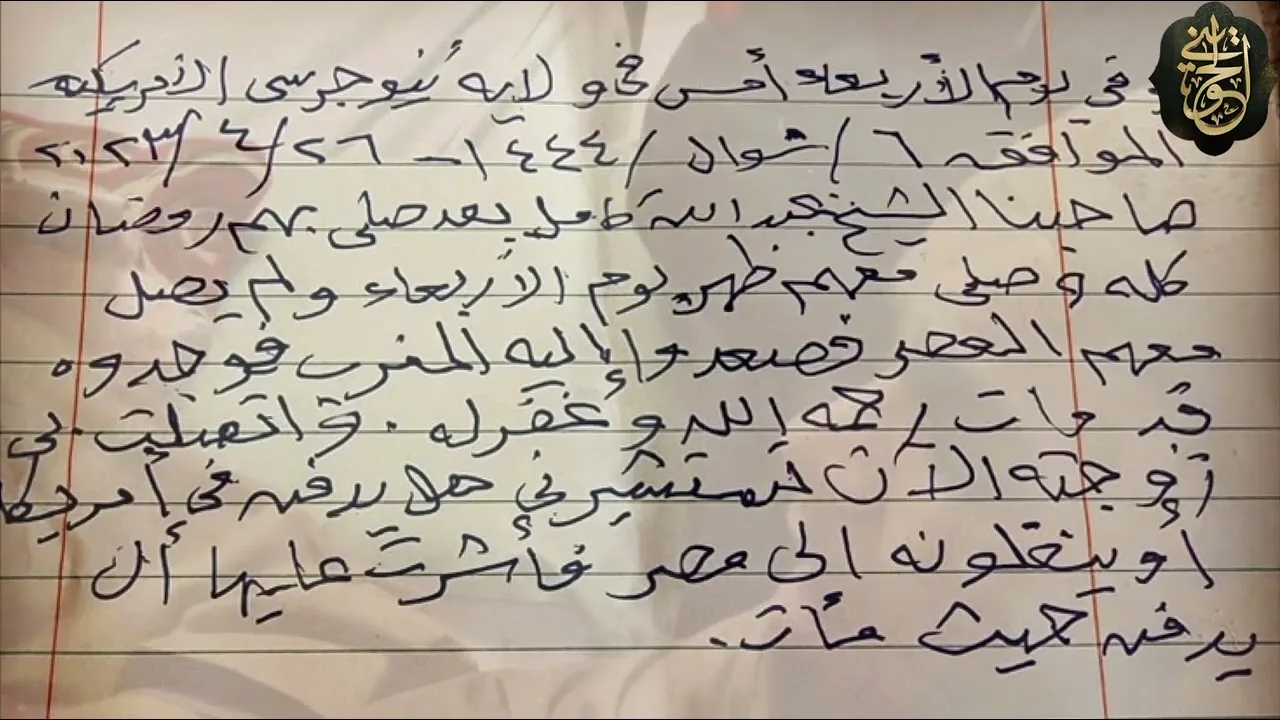 وفي يوم الأربعاء أمس في ولاية نيوجرسى الأمريكية
الموافقه ٦ / شوال / ١٤٤٤ - ٢٦ / ٤ / ٢٠٢٣
صاحبنا الشيخ عبد الله كامل بعد صلى بهم رمضان
كله وصلى معهم ظهر يوم الأربعاء ولم يصل
معهم العصر فصعدوا إليه المغرب فوجدوه
قد مات رحمه الله وغفر له . واتصلت بي
زوجته الآن تستشيرني هل يدفنه في أمريكا
أو ينقلونه الى مصر فأشرت عليها أن
يدفنه حيث مات .